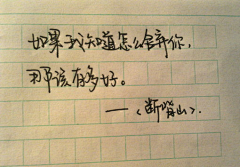 如果我知道怎么舍弃你，
那该有多好。
—《断背山》.